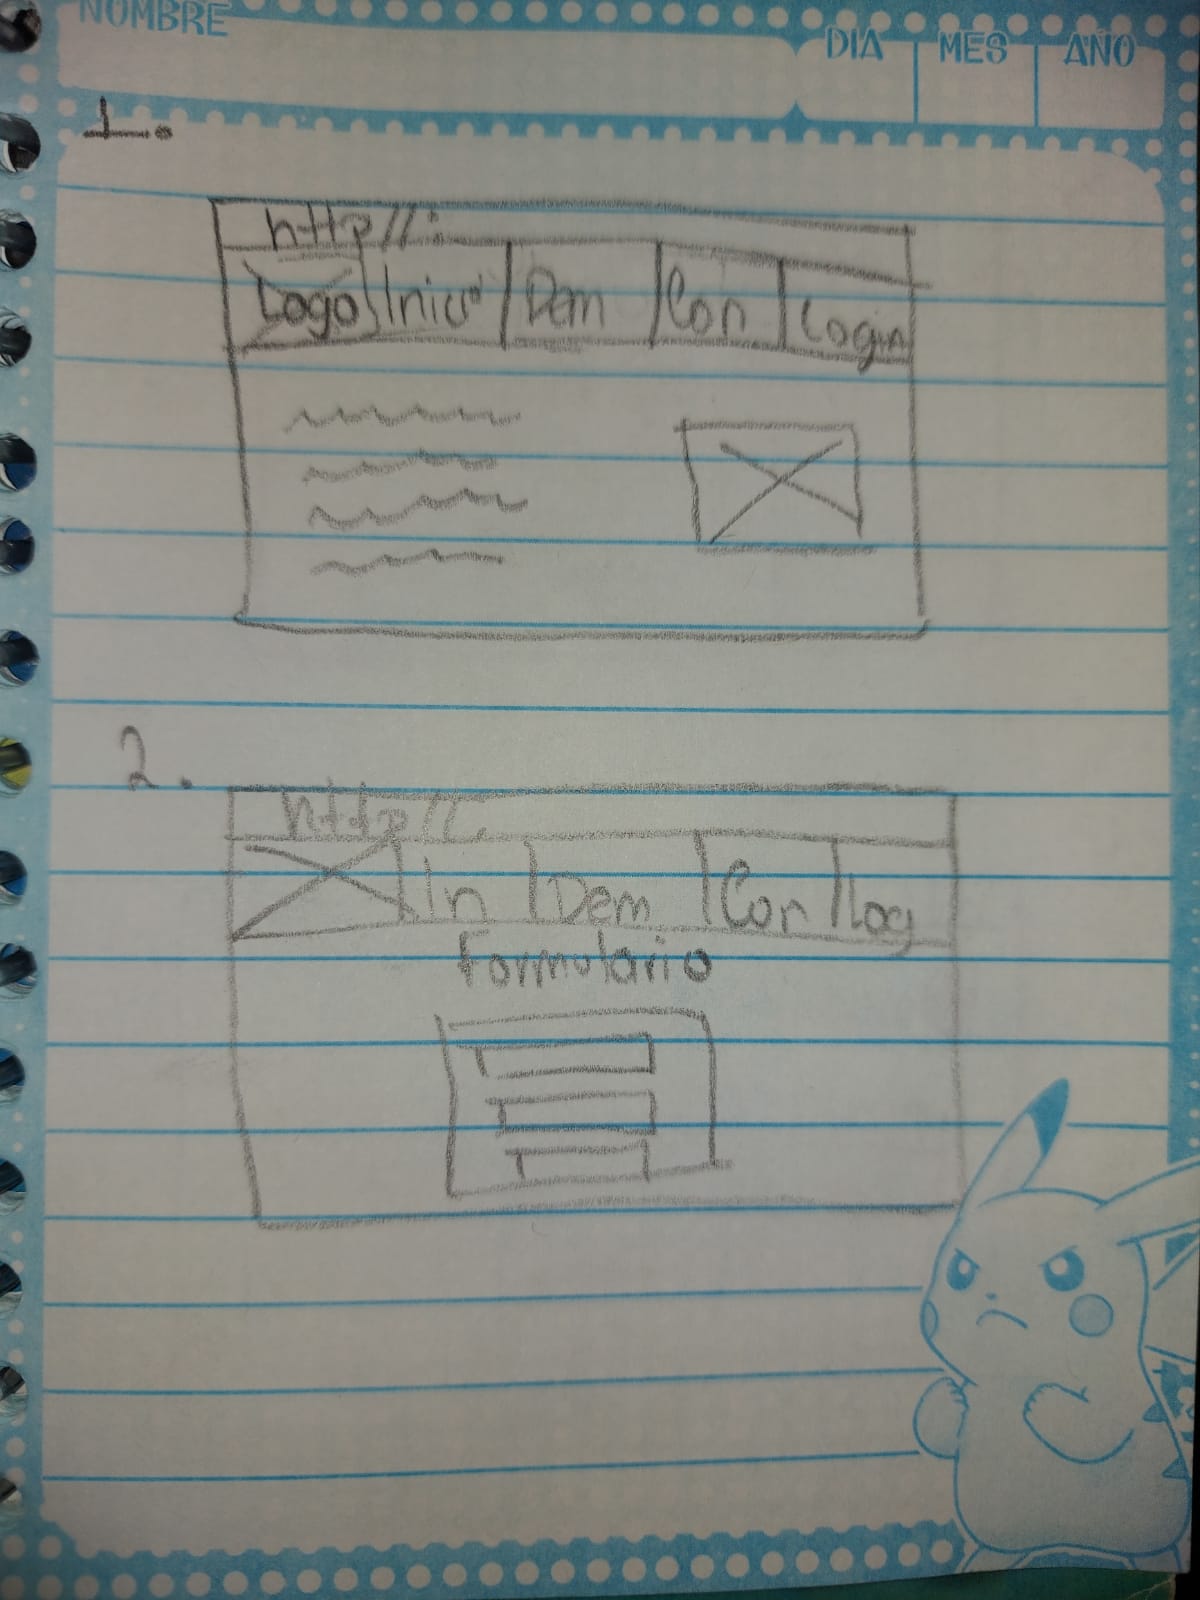 NOMBRE
DIA MES AÑO
1.
http//:
Logo Inicio Dem Con Login
2.
http//:
In Dem Con Log
Formulario